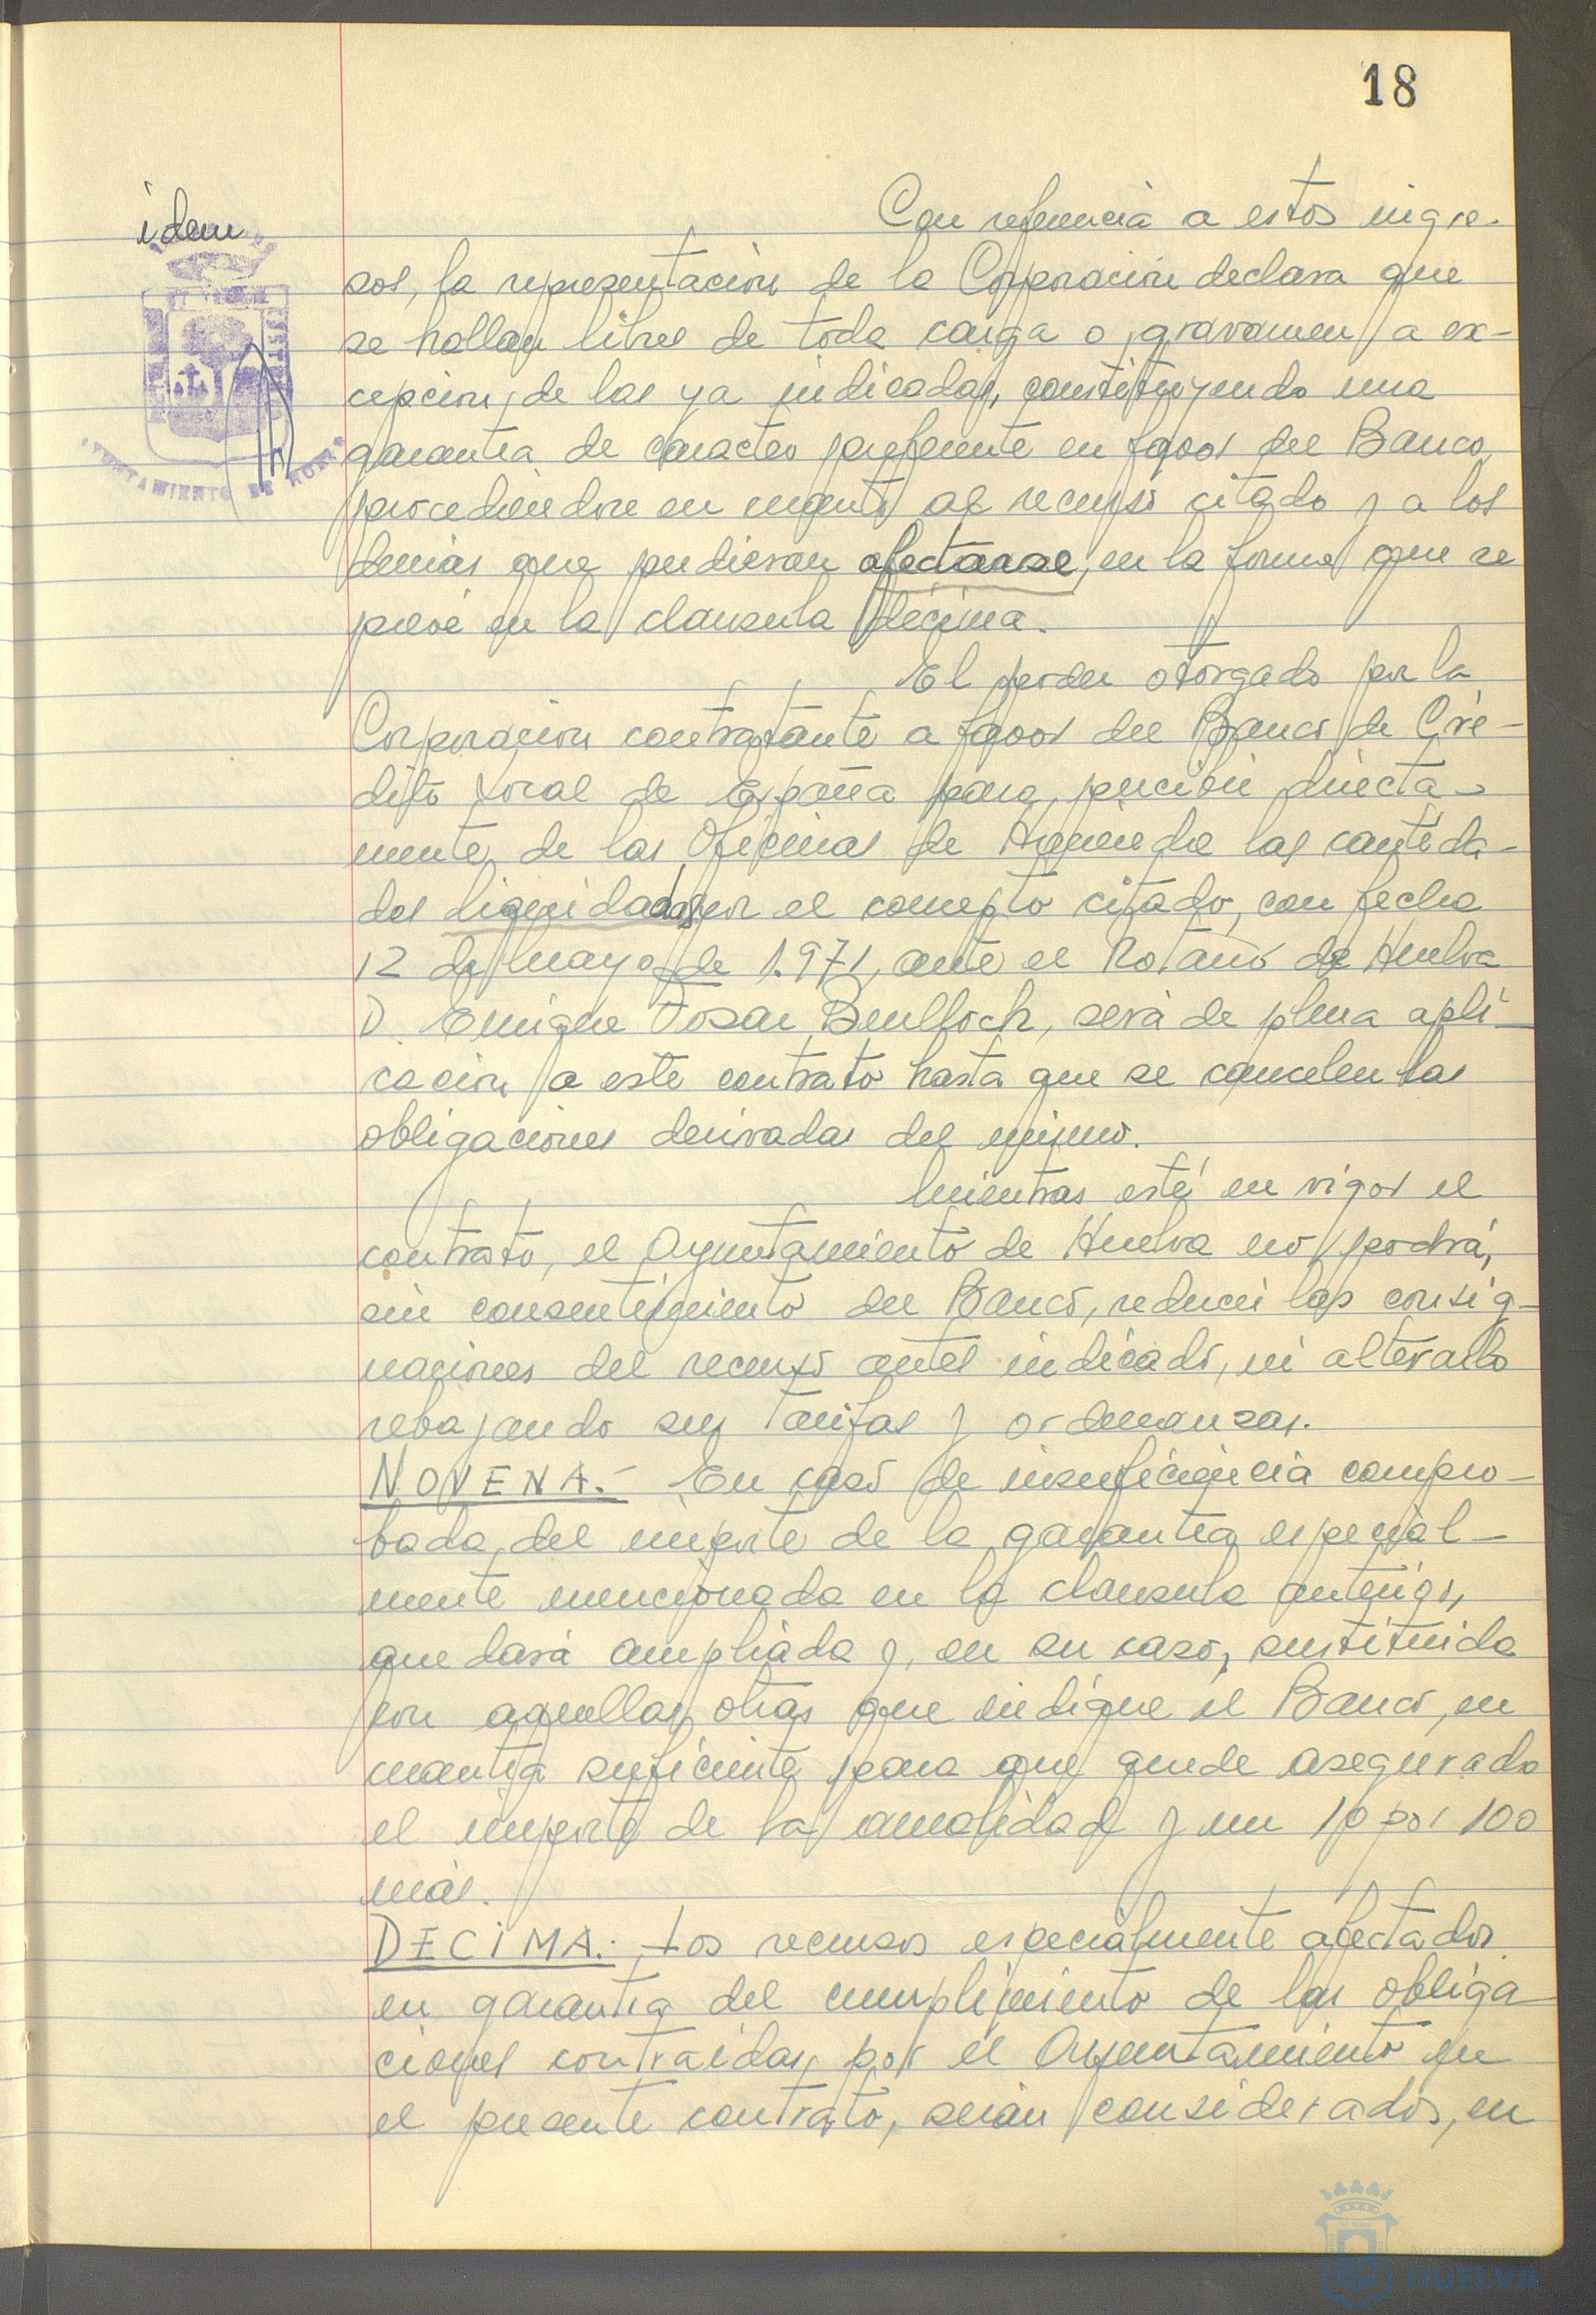 18
idem
AYUNTAMIENTO DE HUELVA
Con referencia a estos ingre-
sos, la representación de la Corporación declara que
se hallan libres de toda carga o gravamen, a ex-
cepción, de las ya indicadas, constituyendo una
garantía de caracter preferente en favor del Banco,
procediéndose en cuanto al recurso citado y a los
demás que pudieran afectarse, en la forma que se
prevé en la clausula décima.
El poder otorgado por la
Corporación contratante a favor del Banco de Cré-
dito Local de España para percibir directa-
mente de las Oficinas de Hacienda las cantida-
des liquidadas por el concepto citado, con fecha
12 de mayo de 1.971, ante el Notario de Huelva
D. Enrique Tosar Benlloch, será de plena apli-
cación a este contrato hasta que se cancelen las
obligaciones derivadas del mismo.
Mientras esté en vigor el
contrato, el Ayuntamiento de Huelva no podrá,
sin consentimiento del Banco, reducir las consig-
naciones del recurso antes indicado, ni alterarlo
rebajando sus tarifas y ordenanzas.
NOVENA.- En caso de insuficiencia compro-
bada, del importe de la garantía especial-
mente mencionada en la clausula anterior,
quedará ampliada y, en su caso, sustituida
con aquellas otras que indique el Banco, en
cuantía suficiente para que quede asegurado
el importe de la anualidad y un 10 por 100
más.
DECIMA.- Los recursos especialmente afectados
en garantía del cumplimiento de las obliga
ciones contraidas por el Ayuntamiento en
el presente contrato, serán considerados, en
Ayuntamiento de
HUELVA